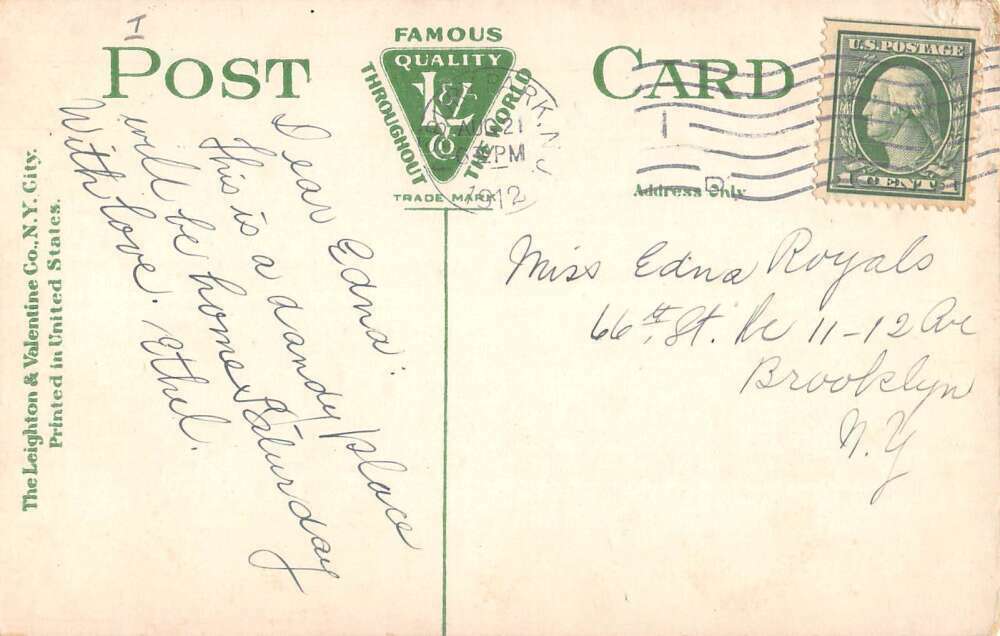 I
POST CARD
FAMOUS
QUALITY
THROUGHOUT THE WORLD
L&V
Co
TRADE MARK
AUG 21
PM
1912
1
Address Only
U.S. POSTAGE
1 CENT 1
The Leighton & Valentine Co., N.Y. City.
Printed in United States.
Dear Edna.
This is a dandy place
will be home Saturday
With love. Ethel.
Miss Edna Royals
66th St. 11-12 Ave
Brooklyn
N.Y